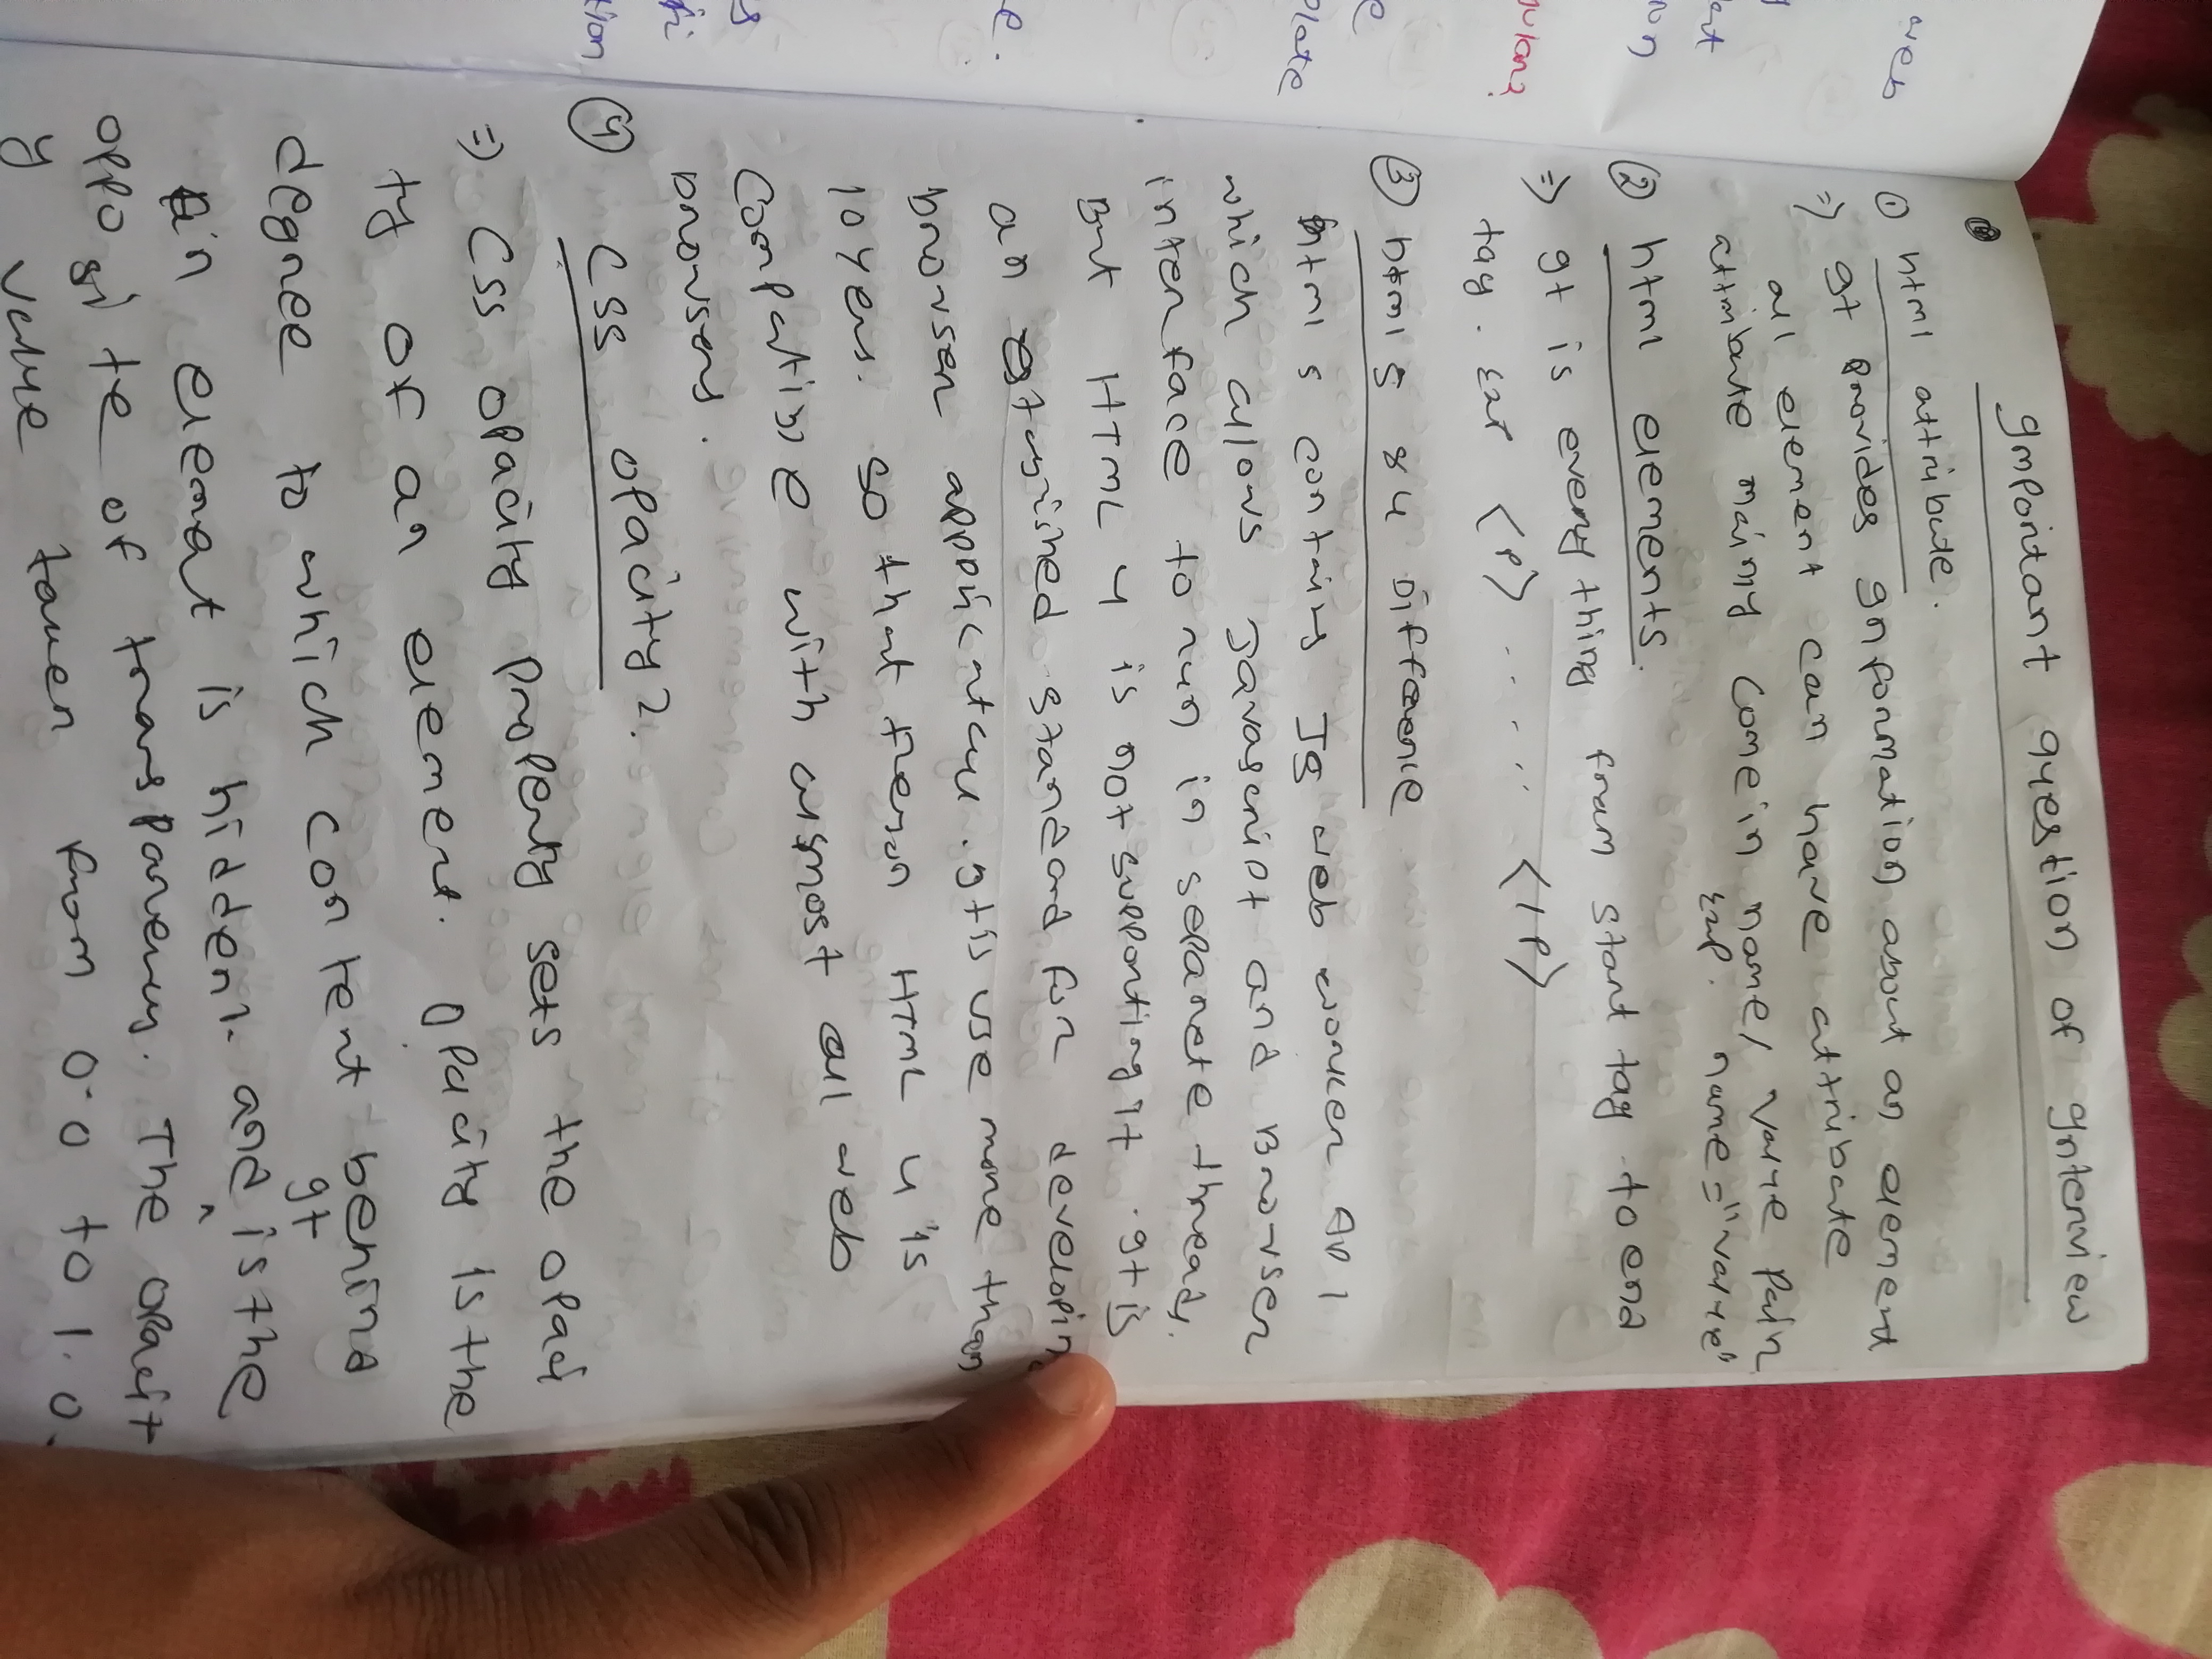 Important question of Interview
① html attribute.
=> It Provides Information about an element
all element can have attribute
attribute mainly come in name/ value pair
Exp. name="value"
② html elements.
=> It is every thing fram start tag to end
tag. Exp <p> ...... </p>
③ html 5 & 4 Difference
html 5 contains JS web worker API
which allows Javascript and Browser
interface to run in seperete threads.
But HTML 4 is not supporting it. It is
an standard for developing
browser . It is use more than
10 yers. so that HTML 4 is
compatible with almost all web
browsers.
④ CSS opacity?.
=> CSS opacity property sets the opaci
ty of an element. Opacity is the
degree to which content behind
It
an element is hidden. and is the
opposite of transparency. The opacit
y value taken from 0.0 to 1.0.
web
ion
gular?
e
plate
e.
s
tion